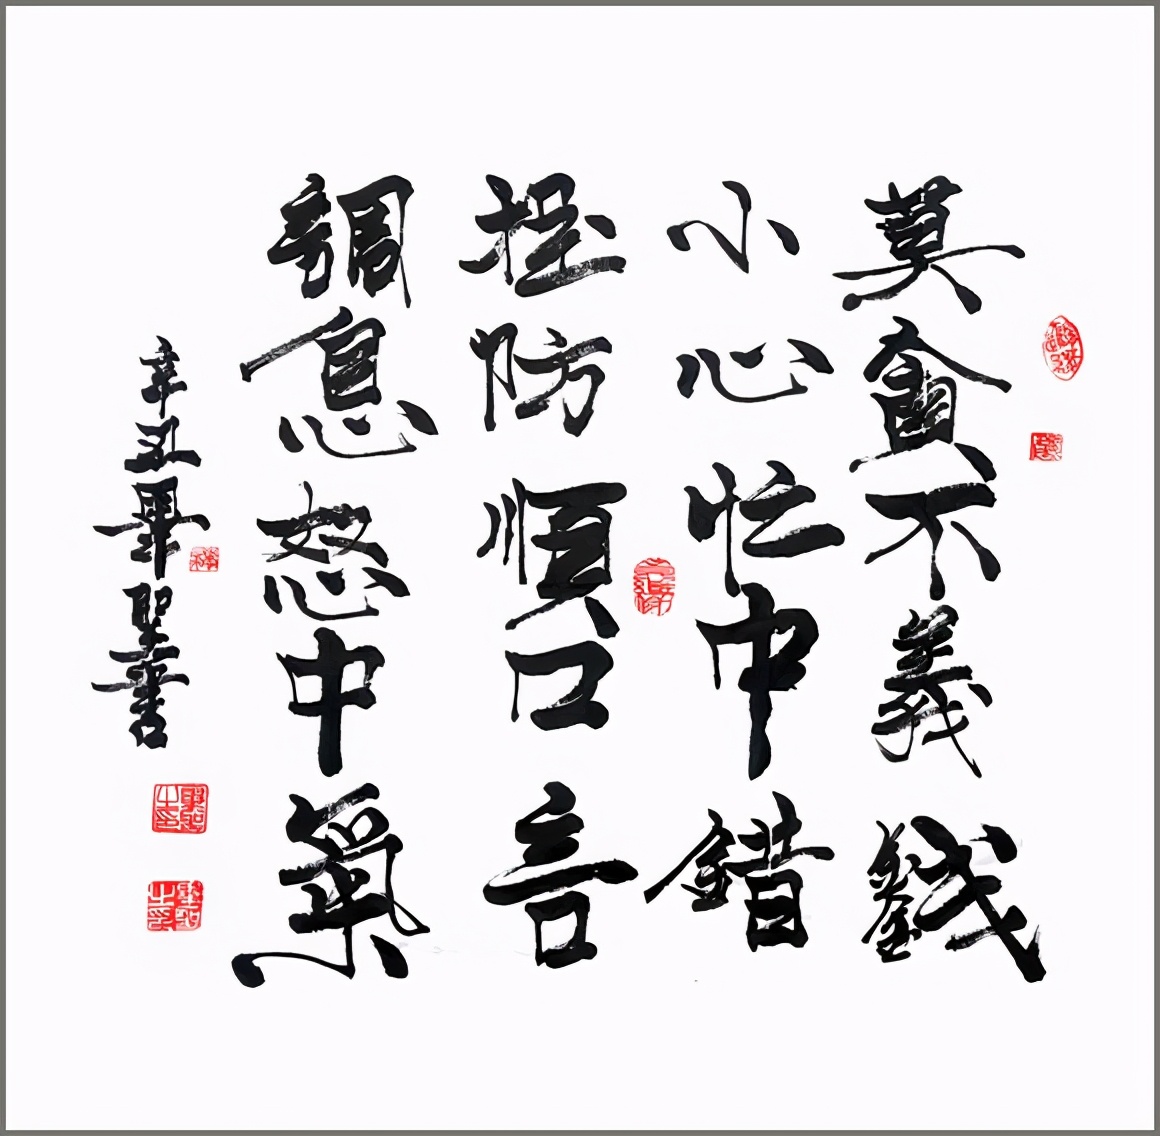 莫貪不義錢
小心忙中錯
提防順口言
調息怒中氣
辛丑畢聖書